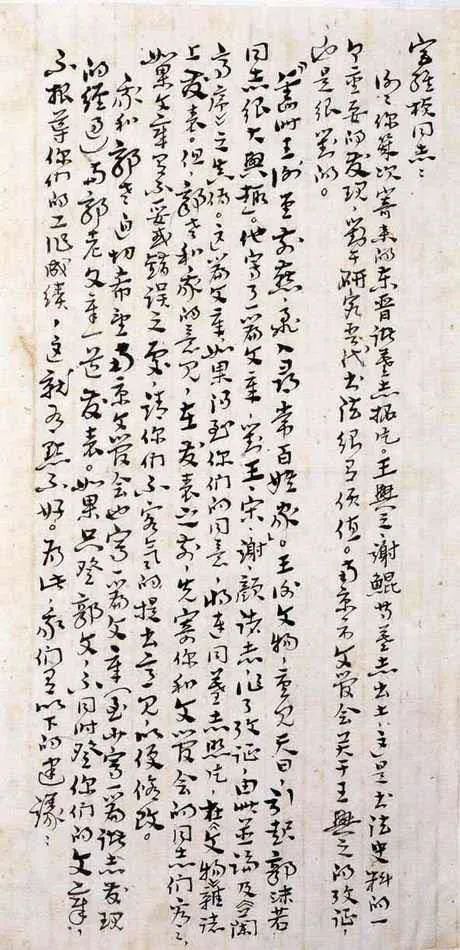 宫维桢同志：
谢谢你几次寄来的东晋诸墓志拓片。王興之、谢鲲等墓志出土，这是书法史料的一
个重要的发现，对于研究当代书法很有价值。南京市文管会关于王興之的考证，
也是很对的。
“舊时王谢堂前燕，飞入尋常百姓家”。王谢文物，重见天日，引起郭沫若
同志很大興趣。他寫了一篇文章，对王、宋、谢、颜诸志，作了考证，由此並論及《兰
亭序》之真伪。这篇文章，如果得到你们的同意，将连同墓志照片，在《文物》雜誌
上发表。但，郭老和我的意见，在发表之前，先寄你和文管会的同志们看看，
如果文章有不妥或错误之处，请你们不客气的提出意见，以便修改。
我和郭老迫切希望南京文管会也写一篇文章（至少写一篇诸志发现
的经过）与郭老文章一道发表。如果只登郭文，不同时登你们的文章，
不报导你们的工作成绩，这就有点不好。为此，我们有以下的建议：